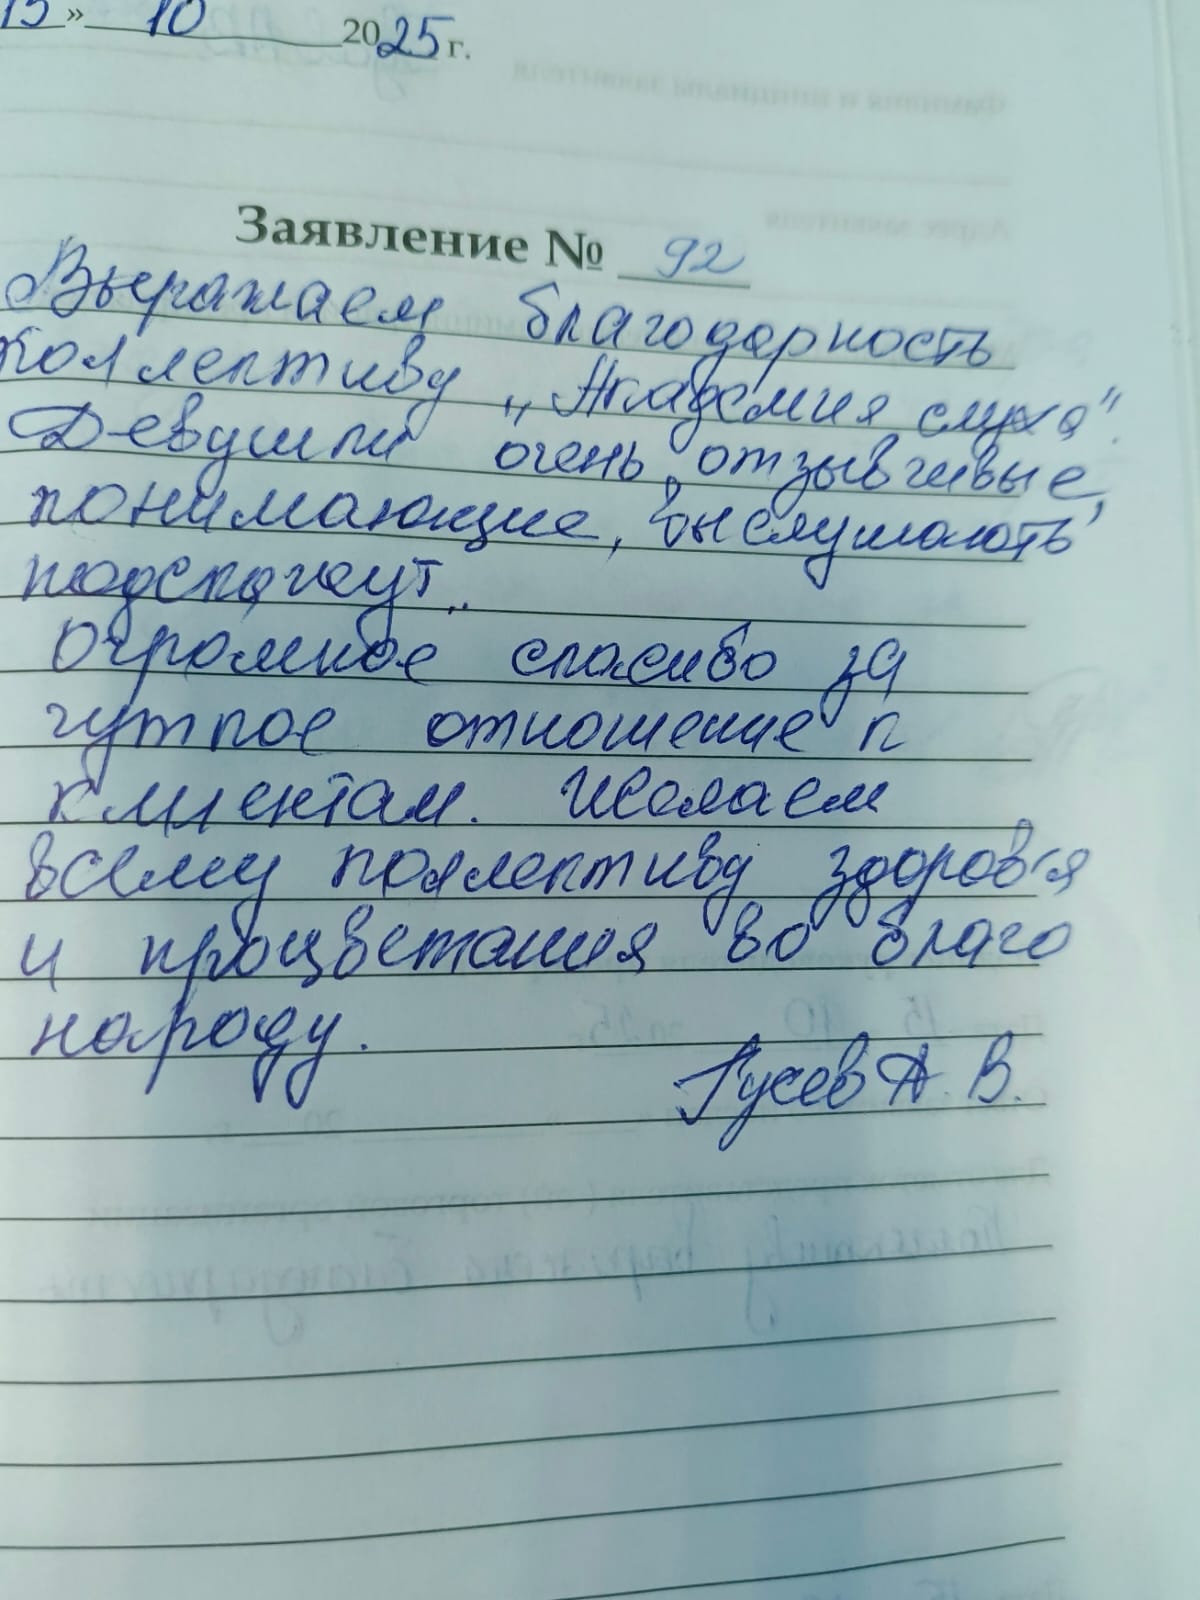 15 » 10 2025 г.
Заявление № 92
Выражаем благодарность
коллективу „Академия слуха".
Девушки очень отзывчивые,
понимающие, выслушають
подскажут.
Огромное спасибо за
чуткое отношение к
клиентам. Желаем
всему коллективу здоровья
и процветания во благо
народу.
Гусев А. В.